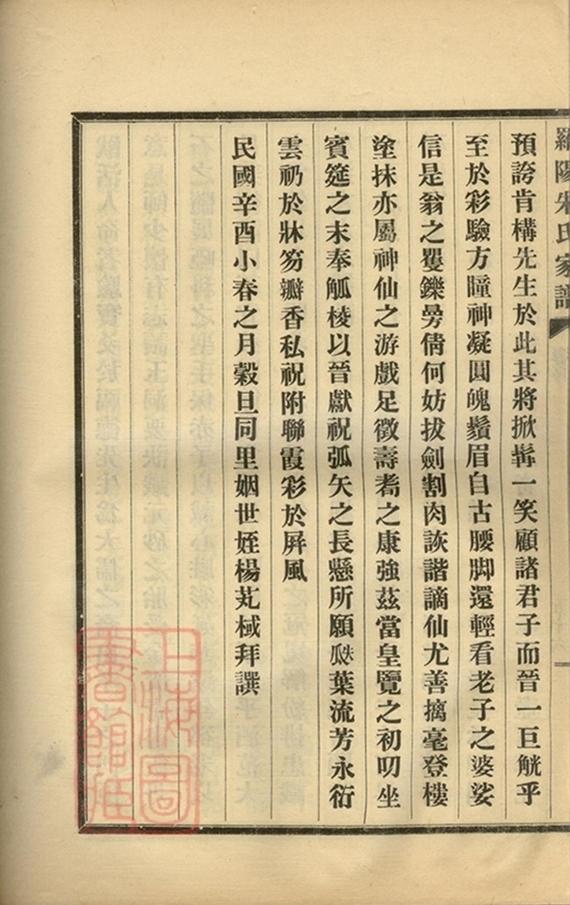 羅陽朱氏家譜
預誇肯構先生於此其將掀髯一笑顧諸君子而晉一巨觥乎
至於彩驗方瞳神凝圓魄鬚眉自古腰脚還輕看老子之婆娑
信是翁之矍鑠曼倩何妨拔劍割肉詼諧謫仙尤善摛毫登樓
塗抹亦屬神仙之游戲足徵壽耇之康強茲當皇覽之初叨坐
賓筵之末奉觚棱以晉獻祝弧矢之長懸所願瓜瓞葉流芳永衍
雲礽於牀笏瓣香私祝附聯霞彩於屏風
民國辛酉小春之月穀旦同里姻世姪楊芃棫拜譔
上海圖
書館藏